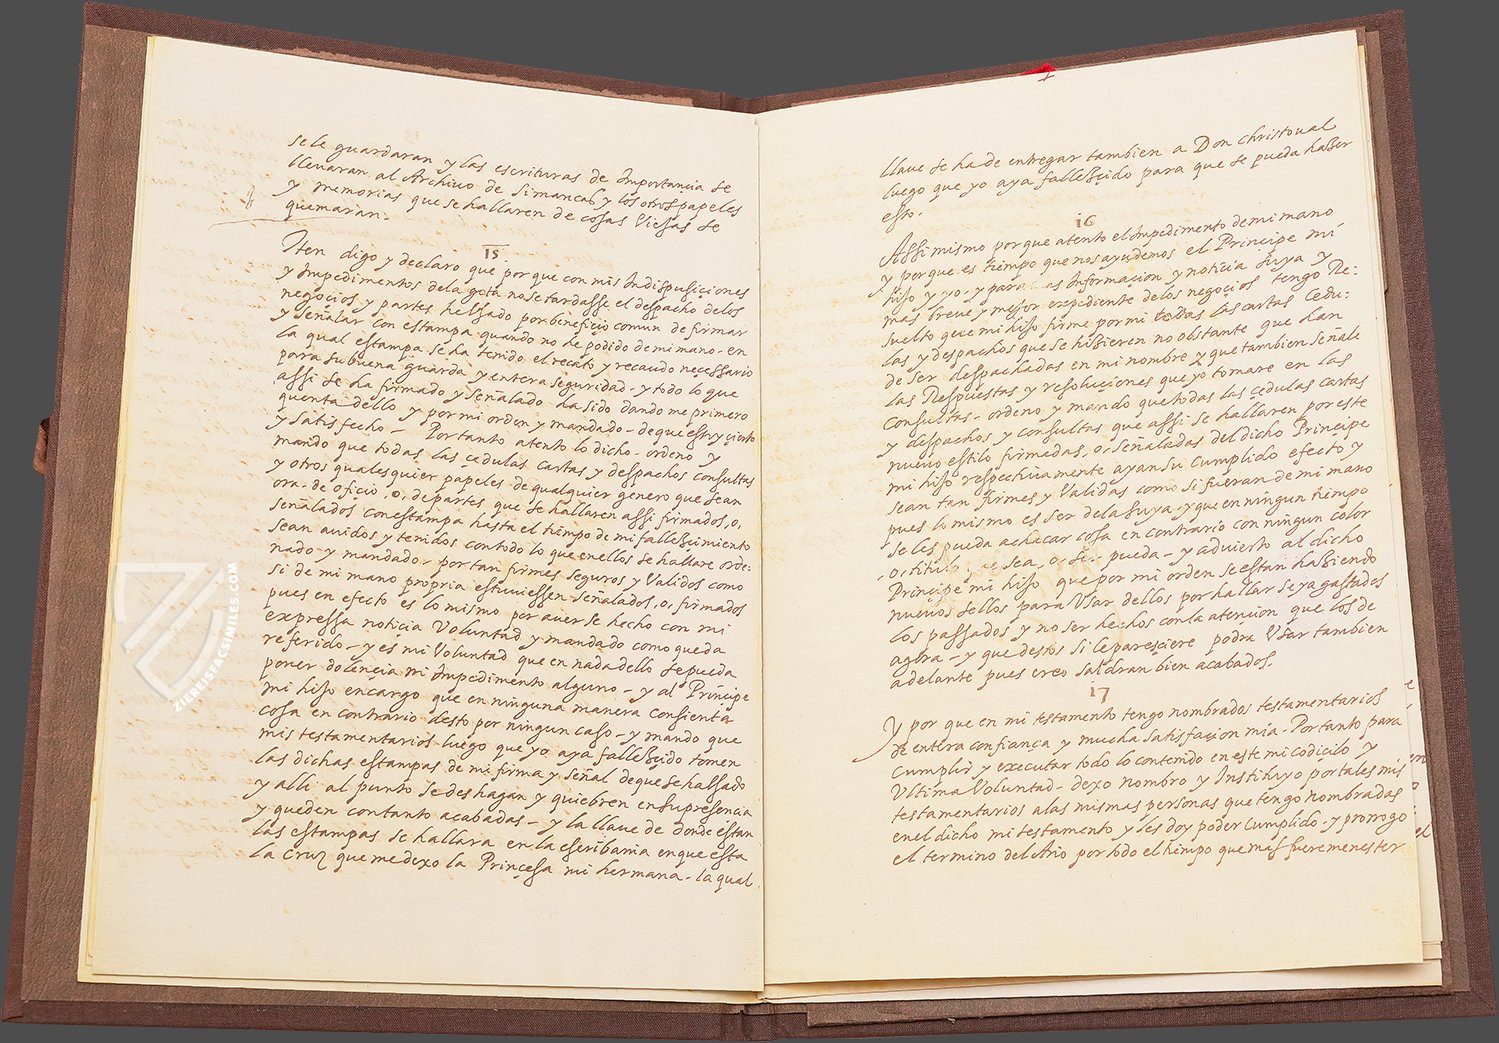 se le guardaran y las escrituras de Importancia se
llevaran al Archivo de Simancas y los otros papeles
y memorias que se hallaren de cosas Viejas se
quemaran.
15
Iten digo y declaro que por que con mis Indispusiçiones
y Impedimentos dela gota nose tardasse el despacho delos
negocios y partes he Usado por benefiçio comun de firmar
y señalar con estampa quando no he podido de mi mano - en
la qual estampa se ha tenido el recato y recaudo neçessario
para su buena guarda y entera seguridad - y todo lo que
assi se ha firmado y señalado ha sido dando me primero
quenta dello y por mi orden y mandado - de que estoy çierto
y satisfecho - Por tanto atento lo dicho - ordeno y
mando que todas las çedulas cartas y despachos consultas
y otros quales quier papeles de qualquier genero que sean
ora - de ofiçio, o, de partes que se hallaren assi firmados, o,
señalados con estampa hasta el tiempo de mi fallesçimiento
sean auidos y tenidos con todo lo que en ellos se hallare orde:
nado y mandado - por tan firmes seguros y Validos como
si de mi mano propria estuuiessen señalados, o, firmados
pues en efecto es lo mismo por auer se hecho con mi
expressa notiçia Voluntad y mandado como queda
referido - y es mi Voluntad que en nada dello se pueda
poner dolençia ni Impedimento alguno - y al Prinçipe
mi hijo encargo que en ninguna manera consienta
cosa en contrario desto por ningun caso - y mando que
mis testamentarios luego que yo aya fallesçido tomen
las dichas estampas de mi firma y señal de que se ha Usado
y alli al punto se deshagan y quiebren en su presençia
y queden con tanto acabadas - y la llave de donde estan
las estampas se hallara en la escribania en que esta
la Cruz que me dexo la Prinçesa mi hermana - la qual
llave se ha de entregar tambien a Don Christoual
luego que yo aya fallesçido para que se pueda hazer
esto.
16
Assi mismo por que atento el Impedimento de mi mano
y por que es tiempo que nos ayudemos el Prinçipe mi
hijo y yo - y para mas Informaçion y notiçia suya y
mas breve y mejor expediente delos negoçios tengo Re:
suelto que mi hijo firme por mi todas las cartas Çedu:
las y despachos que se hiçieren no obstante que han
de ser despachadas en mi nombre y que tambien señale
las Respuestas y resoluçiones que yo tomare en las
Consultas - ordeno y mando que todas las çedulas cartas
y despachos y consultas que assi se hallaren por este
nuevo estilo firmadas, o, señaladas del dicho Prinçipe
mi hijo respectivamente ayan su cumplido efecto y
sean tan firmes y Validas como si fueran de mi mano
pues lo mismo es ser dela suya - y que en ningun tiempo
se les pueda achacar cosa en contrario con ningun color
, o, titulo que sea, o, ser pueda - y advierto al dicho
Prinçipe mi hijo que por mi orden se estan haziendo
nuevos sellos para Usar dellos por hallar se ya gastados
los passados y no ser hechos con la atençion que los de
agora - y que destos si le paresçiere podra Usar tambien
adelante pues creo saldran bien acabados.
17
Y por que en mi testamento tengo nombrados testamentarios
de entera confiança y mucha satisfaçion mia - Por tanto para
cumplir y executar todo lo contenido en este mi codiçilo y
Ultima Voluntad - dexo nombro y Instituyo por tales mis
testamentarios a las mismas personas que tengo nombradas
en el dicho mi testamento y les doy poder cumplido - y prorrogo
el termino del Año por todo el tiempo que mas fuere menester
ZIEREISFACSIMILES.COM